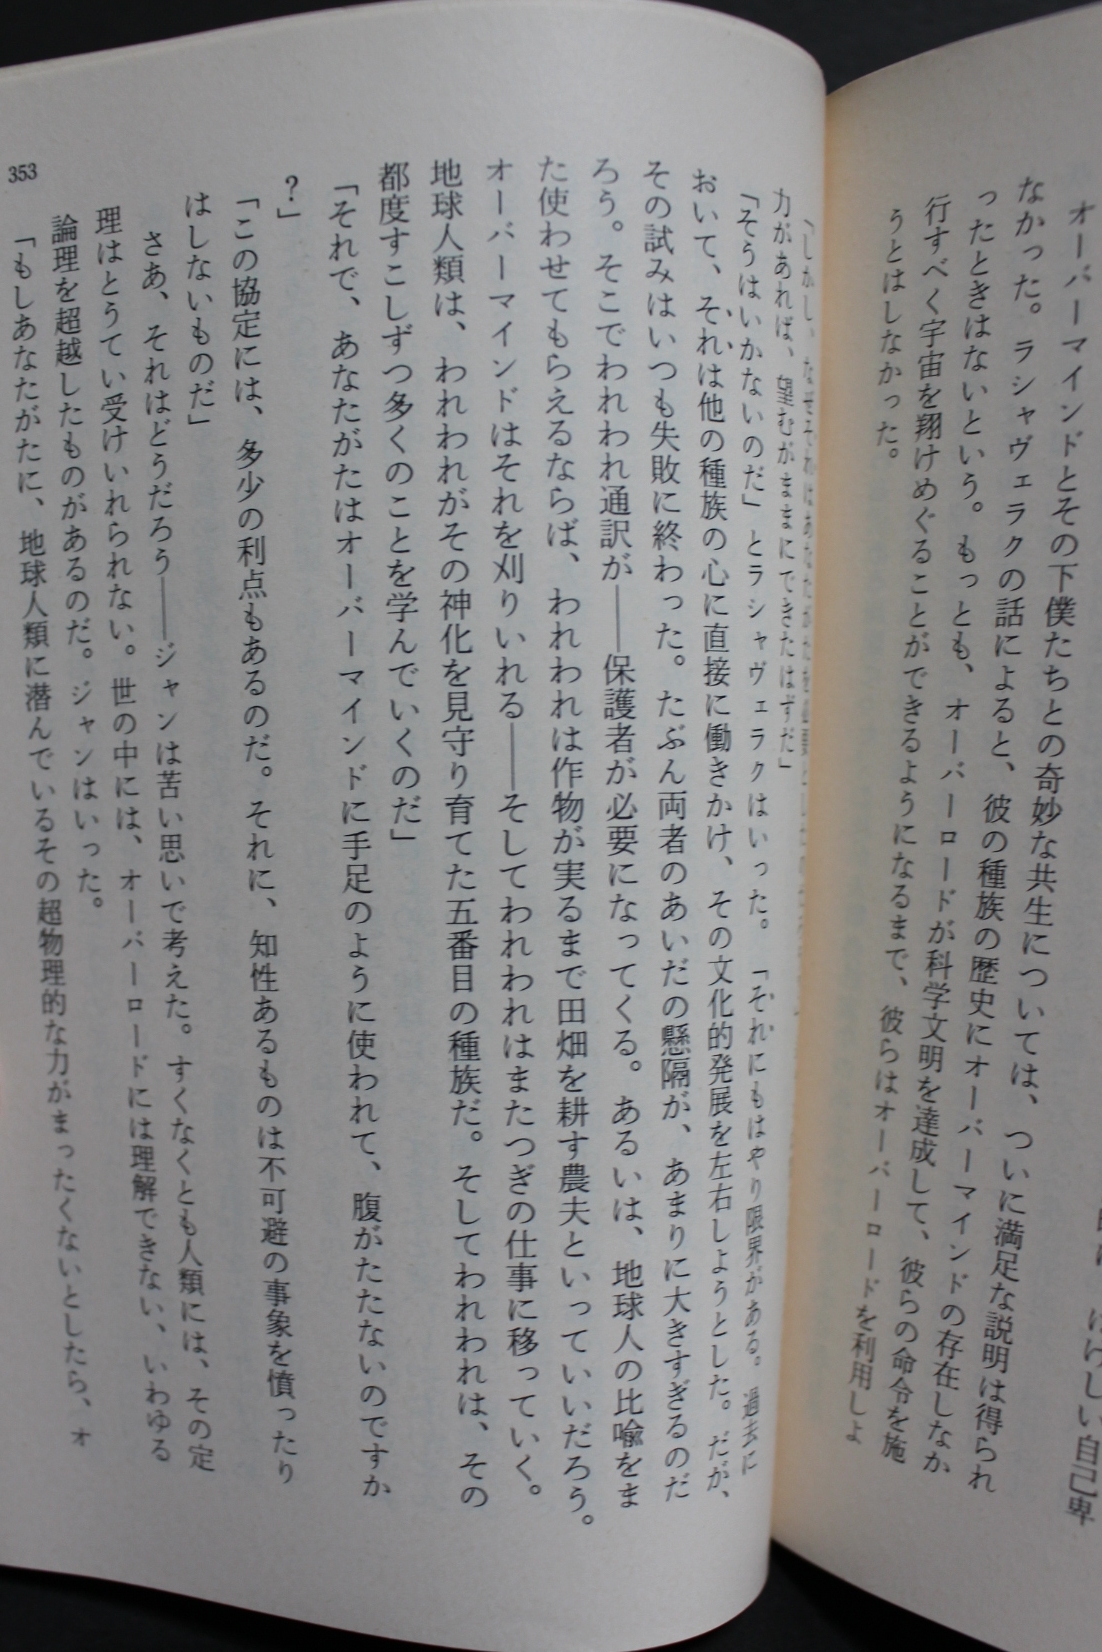 けしい自己卑
オーバーマインドとその下僕たちとの奇妙な共生については、ついに満足な説明は得られ
なかった。ラシャヴェラクの話によると、彼の種族の歴史にオーバーマインドの存在しなか
ったときはないという。もっとも、オーバーロードが科学文明を達成して、彼らの命令を施
行すべく宇宙を翔けめぐることができるようになるまで、彼らはオーバーロードを利用しよ
うとはしなかった。
「しかし、なぜそれはあなたがたを必要とした
力があれば、望むがままにできたはずだ」
「そうはいかないのだ」とラシャヴェラクはいった。「それにもはやり限界がある。過去に
おいて、それは他の種族の心に直接に働きかけ、その文化的発展を左右しようとした。だが、
その試みはいつも失敗に終わった。たぶん両者のあいだの懸隔が、あまりに大きすぎるのだ
ろう。そこでわれわれ通訳が——保護者が必要になってくる。あるいは、地球人の比喩をま
た使わせてもらえるならば、われわれは作物が実るまで田畑を耕す農夫といっていいだろう。
オーバーマインドはそれを刈りいれる——そしてわれわれはまたつぎの仕事に移っていく。
地球人類は、われわれがその神化を見守り育てた五番目の種族だ。そしてわれわれは、その
都度すこしずつ多くのことを学んでいくのだ」
「それで、あなたがたはオーバーマインドに手足のように使われて、腹がたたないのですか
？」
「この協定には、多少の利点もあるのだ。それに、知性あるものは不可避の事象を憤ったり
はしないものだ」
さあ、それはどうだろう——ジャンは苦い思いで考えた。すくなくとも人類には、その定
理はとうてい受けいれられない。世の中には、オーバーロードには理解できない、いわゆる
論理を超越したものがあるのだ。ジャンはいった。
「もしあなたがたに、地球人類に潜んでいるその超物理的な力がまったくないとしたら、オ
353